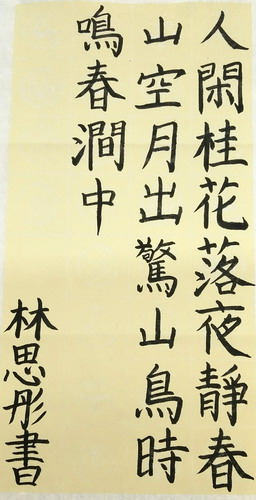 人閑桂花落夜靜春
山空月出驚山鳥時
鳴春澗中
林思彤書